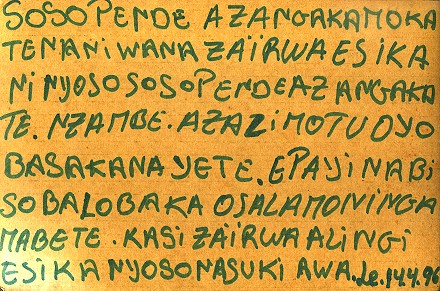 SOSO PENDE AZANGAKA MOKA
TE NA NI WANA ZAÏRWA ESIKA
NI NYOSO SOSO PENDE AZANGAKA
TE. NZAMBE. AZALI MOTU OYO
BASAKANA YE TE. EPAYI NA BI
SO BALOBAKA OSALA MONINGA
MABE TE. KASI ZAÏRWA ALINGI
ESIKA NYOSO NASUKI AWA. Le. 14.4.96